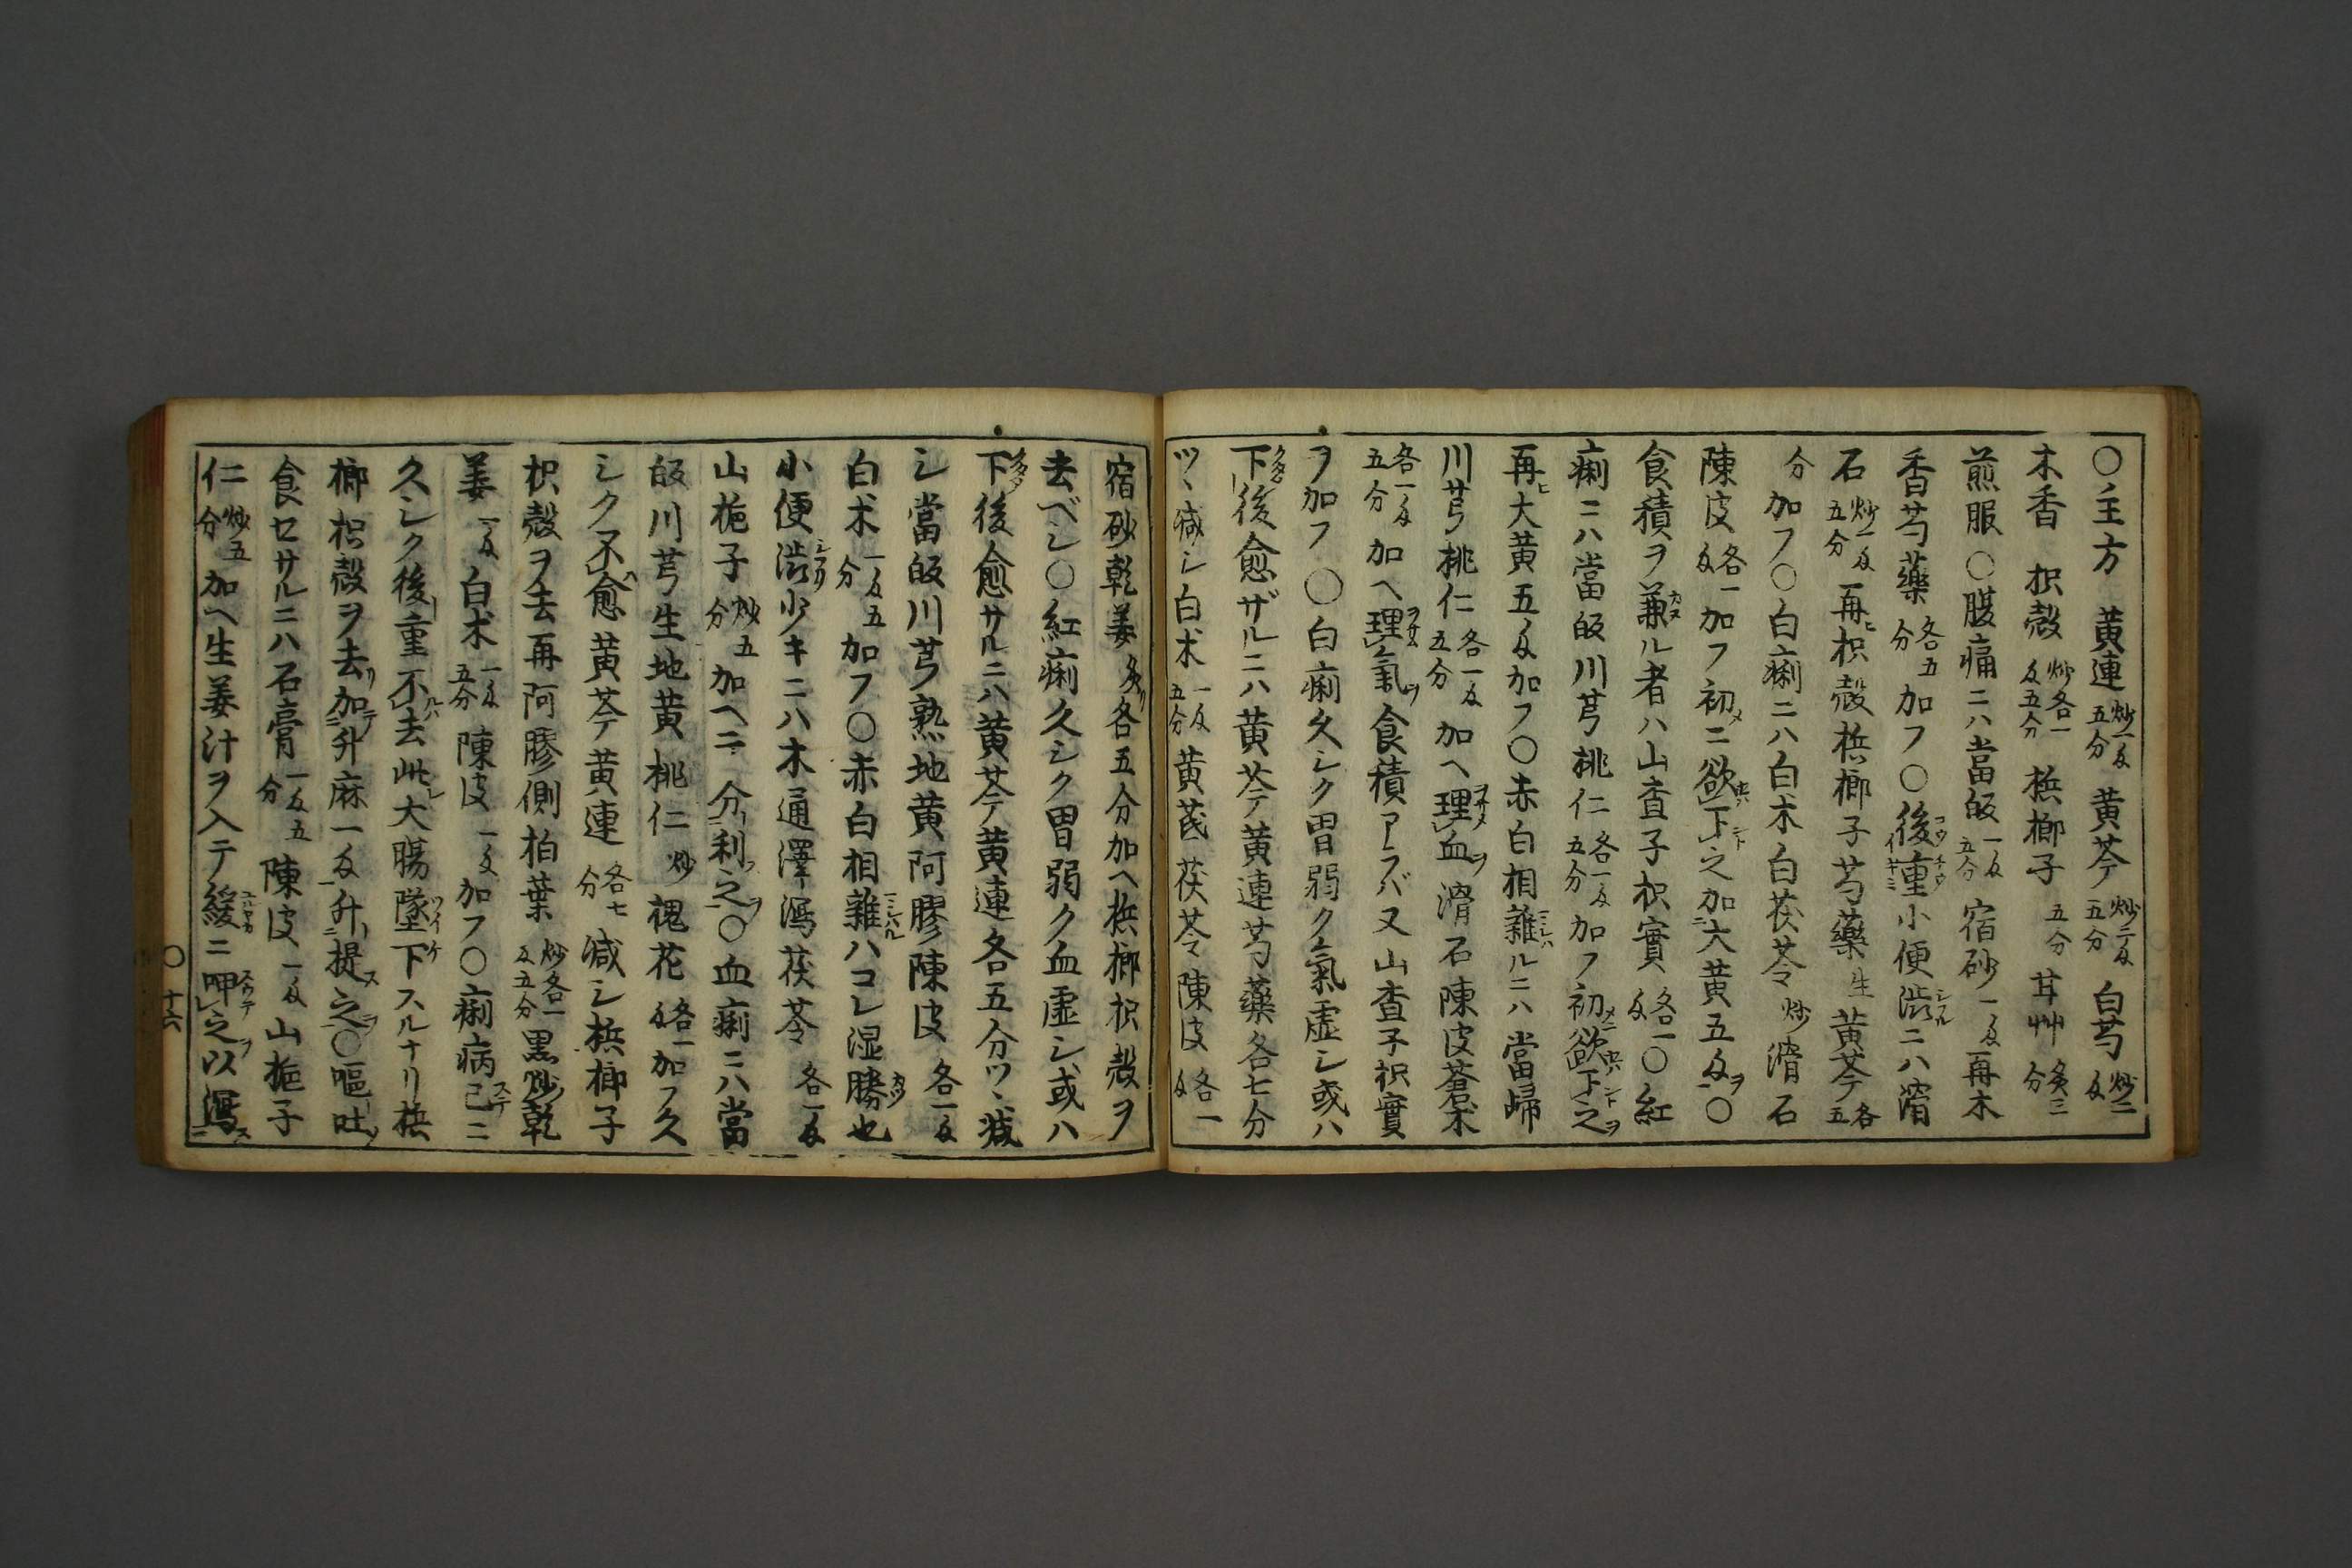 ○主方 黄連炒一匁五分 黄芩炒二匁五分 白芍炒二匁
木香 枳殻炒各一匁五分 梹榔子五分 耳艸炙三分
煎服○腹痛ニハ當皈一匁五分 宿砂一匁再木
香芍藥各五分加フ○後重コウチウイキミ小便渋シブルニハ滑
石炒一匁五分再ヒ枳殻梹榔子芍藥生黄芩各五
分加フ○白痢ニハ白木白茯苓炒滑石
陳皮各一匁加フ初メニ欲下之加大黄五匁ヲ○
食積ヲ兼カヌル者ハ山査子枳實各一匁○紅
痢ニハ當皈川芎桃仁各一匁五分加フ初メニ欲下ント之ヲ
再ヒ大黄五匁加フ○赤白相雜ルニハ當歸
川芎桃仁各一匁五分加ヘ理ヲサメ血ヲ滑石陳皮蒼朮
各一匁五分加ヘ理ヲサメ氣ヲ食積アラバ又山査子枳實
ヲ加フ○白痢久シク胃弱ク氣虚シ或ハ
下クダシ後愈ザルニハ黄芩黄連芍藥各七分
ツヽ減シ白朮一匁五分黄芪茯苓陳皮各一匁
宿砂乾姜炙リ各五分加ヘ梹榔枳殻ヲ
去ベシ○紅痢久シク胃弱ク血虚シ或ハ
下クダシ後愈サルニハ黄芩黄連各五分ツヽ減
シ當皈川芎熟地黄阿膠陳皮各一匁
白朮一匁五分加フ○赤白相雜ハコレ湿勝カツ也
小便渋シブリ少キニハ木通澤瀉茯苓各一匁
山梔子炒五分加ヘテ分利ス之ヲ○血痢ニハ當
皈川芎生地黄桃仁炒槐花各一匁加フ久
シク不愈ヘ黄芩黄連各七分減シ梹榔子
枳殻ヲ去再阿膠側柏葉炒各一匁五分黒炒乾
姜一匁白朮一匁五分陳皮一匁加フ○痢病已スデニ
久シク後重不ルハ去此レ大腸墜ツイ下ケスルナリ梹
榔枳殻ヲ去リ加テ升麻一匁升提ス之ヲ○嘔吐ノ
食セサルニハ石膏一匁五分陳皮一匁山梔子
仁炒五分加ヘ生姜汁ヲ入テ緩ユルヤカニ呷スウテ之ヲ以瀉ス
○ 十六